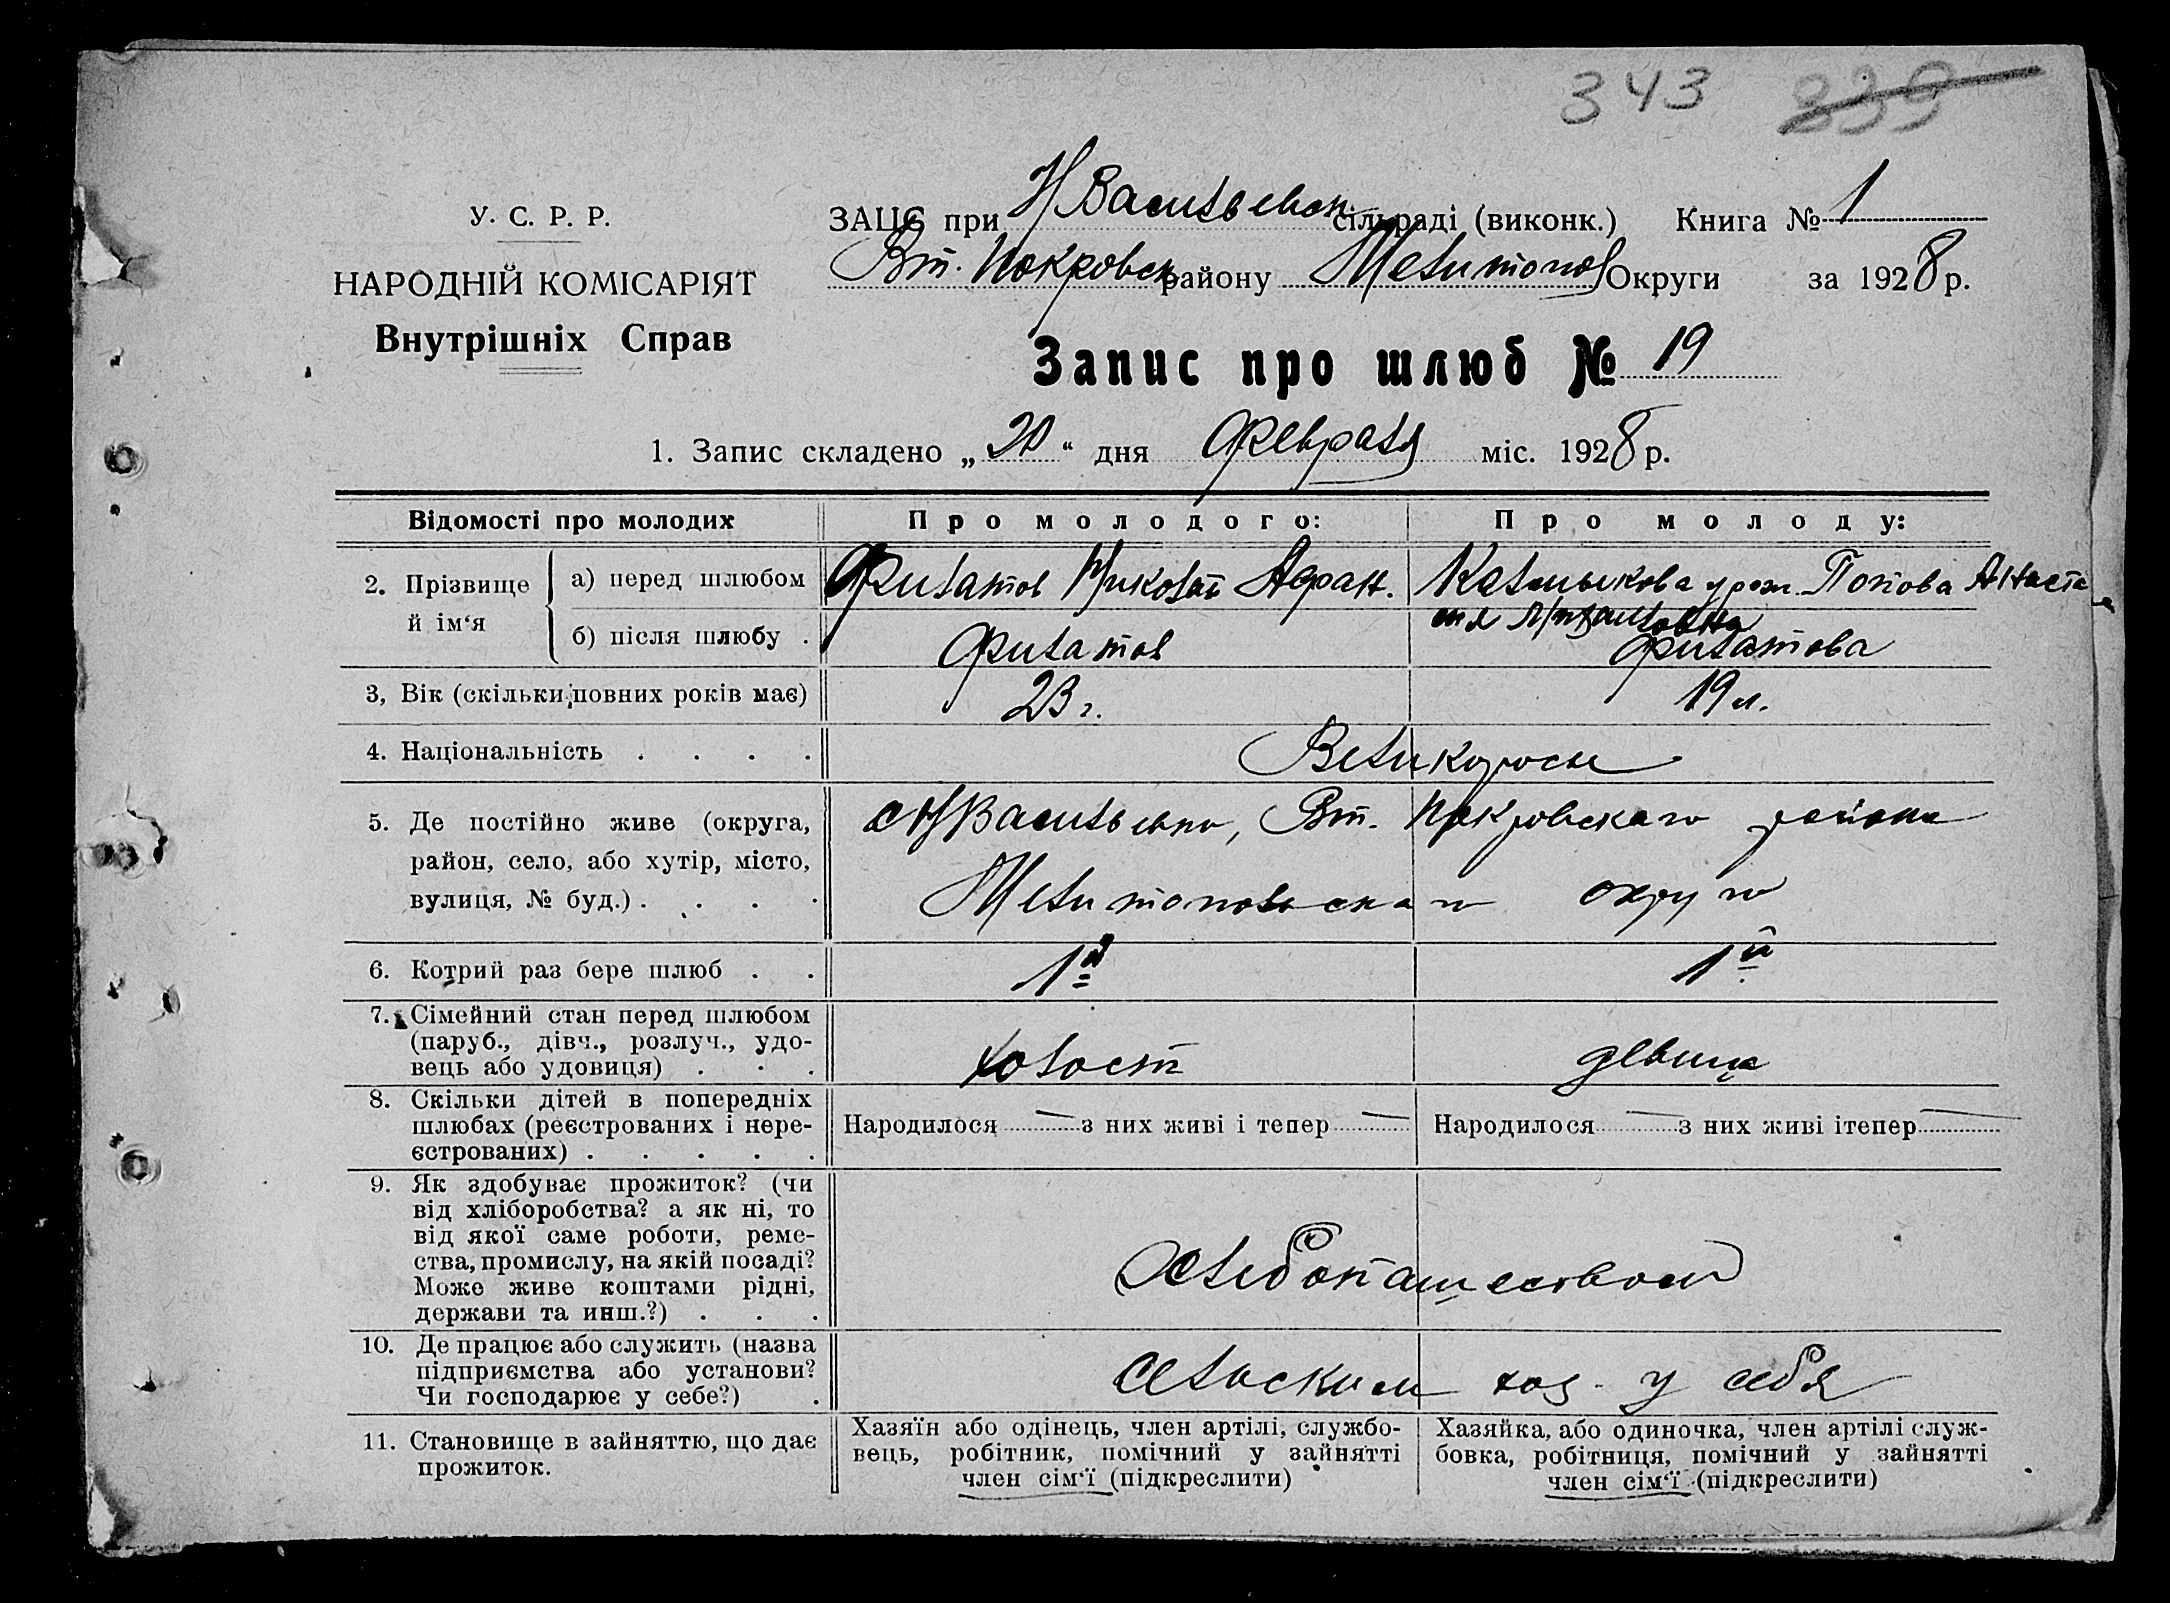 343 339
У. С. Р. Р.
НАРОДНІЙ КОМІСАРІЯТ
Внутрішніх Справ
ЗАЦС при Н Васильевск сільраді (виконк.) Книга № 1
Вт. Покровск району Мелитопол Округи за 1928 р.
Запис про шлюб № 19
1. Запис складено „20“ дня Февраля міс. 1928 р.
Відомості про молодих
Про молодого:
Про молоду:
2. Прізвище й ім‘я
а) перед шлюбом
Филатов Николай Афан.
Калмыкова урож. Попова Анаста
сия
б) після шлюбу .
Филатов
Филатова
3, Вік (скільки повних років має)
23 г.
19 л.
4. Національність . . . .
Великоросы
5. Де постійно живе (округа,
район, село, або хутір, місто,
вулиця, № буд.) . . . .
с Н Васильевка, Вт. Покровскаго района
Мелитопольскаго округа
6. Котрий раз бере шлюб . .
1й
1й
7. Сімейний стан перед шлюбом
(паруб., дівч., розлуч., удо-
вець або удовиця) . . .
холост
девица
8. Скільки дітей в попередніх
шлюбах (реєстрованих і нере-
єстрованих) . . . . .
Народилося — з них живі і тепер —
Народилося — з них живі ітепер —
9. Як здобуває прожиток? (чи
від хліборобства? а як ні, то
від якої саме роботи, реме-
ства, промислу, на якій посаді?
Може живе коштами рідні,
держави та инш.?) . . .
Хлебопашеством
10. Де працює або служить (назва
підприємства або установи?
Чи господарює у себе?) .
Сельским хоз. у себя
11. Становище в зайняттю, що дає
прожиток.
Хазяїн або одінець, член артілі, службо-
вець, робітник, помічний у зайнятті
член сім‘ї (підкреслити)
Хазяйка, або одиночка, член артілі служ-
бовка, робітниця, помічний у зайнятті
член сім‘ї (підкреслити)